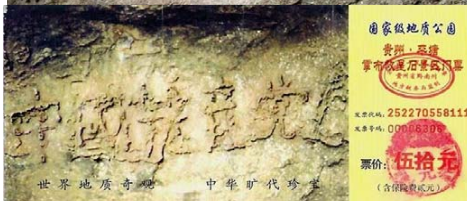 中国共产党
世界地质奇观 中华旷代珍宝
国家级地质公园
贵州·平塘
掌布救星石景区门票
贵州省黔南州
发票代码: 252270558111
发票号码: 00008306
票价: 伍拾元
(含保险费贰元)